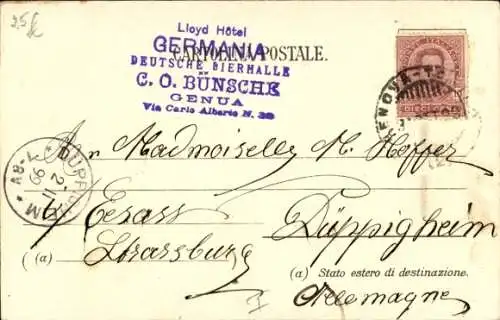 25
Lloyd Hôtel
GERMANIA
CARTOLINA POSTALE.
DEUTSCHE BIERHALLE
C. O. BÜNSCHE
GENUA
Via Carlo Alberto N. 39
GENOVA
DIECI
An Madmoiselly M. Heffer
DUPPIGHEIM
2 11
99
7-8V
b/ Elsass Düppigheim
(a) Strassburg
(a) Stato estero di destinazione.
Allemagne